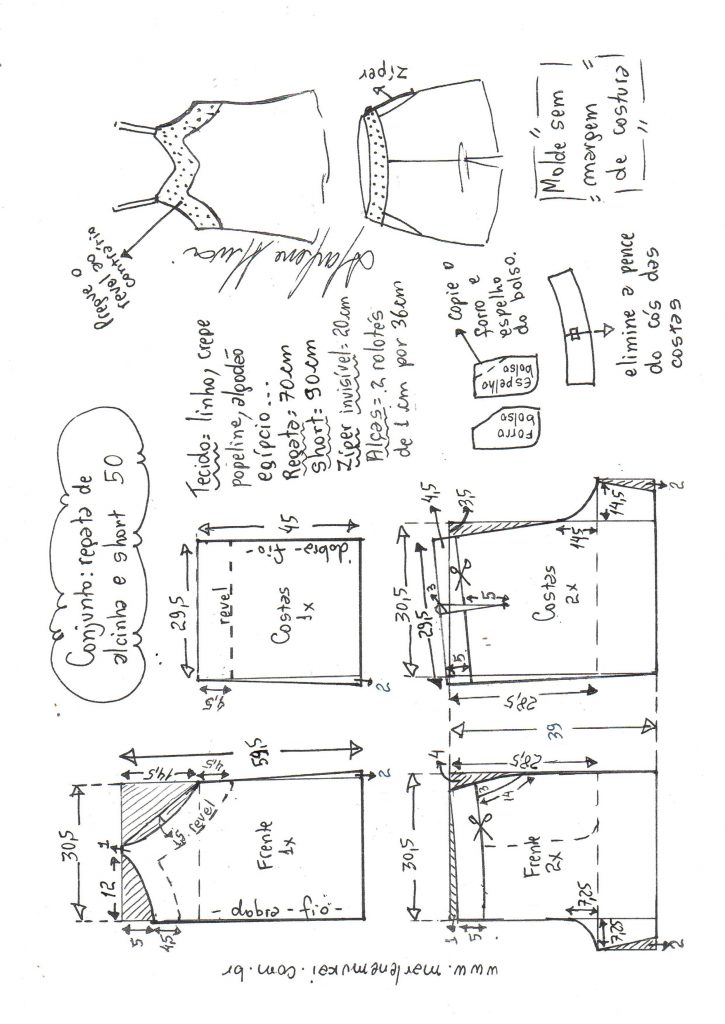 Conjunto: regata de
alcinha e short 50
30,5
12
1
5
4,5
14,5
4,5
59,5
2
revel
1,5
Frente
1x
dobra - fio
29,5
45
4,5
2
revel
Costas
1x
dobra - fio
Tecido: linho, crepe
popeline, algodão
egípcio...
Regata: 70cm
Short: 90cm
Zíper invisível: 20cm
Alças: 2 rolotês
de 1 cm por 36cm
Pregue o
revel ao
contrário
Marlene Mukai
zíper
30,5
4
1
5
3
14
28,5
Frente
2x
7,25
7,25
2
39
30,5
29,5
4,5
3,5
3
5
5
28,5
Costas
2x
14,5
14,5
2
Forro
bolso
Espelho
bolso
copie o
forro e
espelho
do bolso.
elimine a pence
do cós das
costas
Molde sem
margem
de costura
www.marlenemukai.com.br